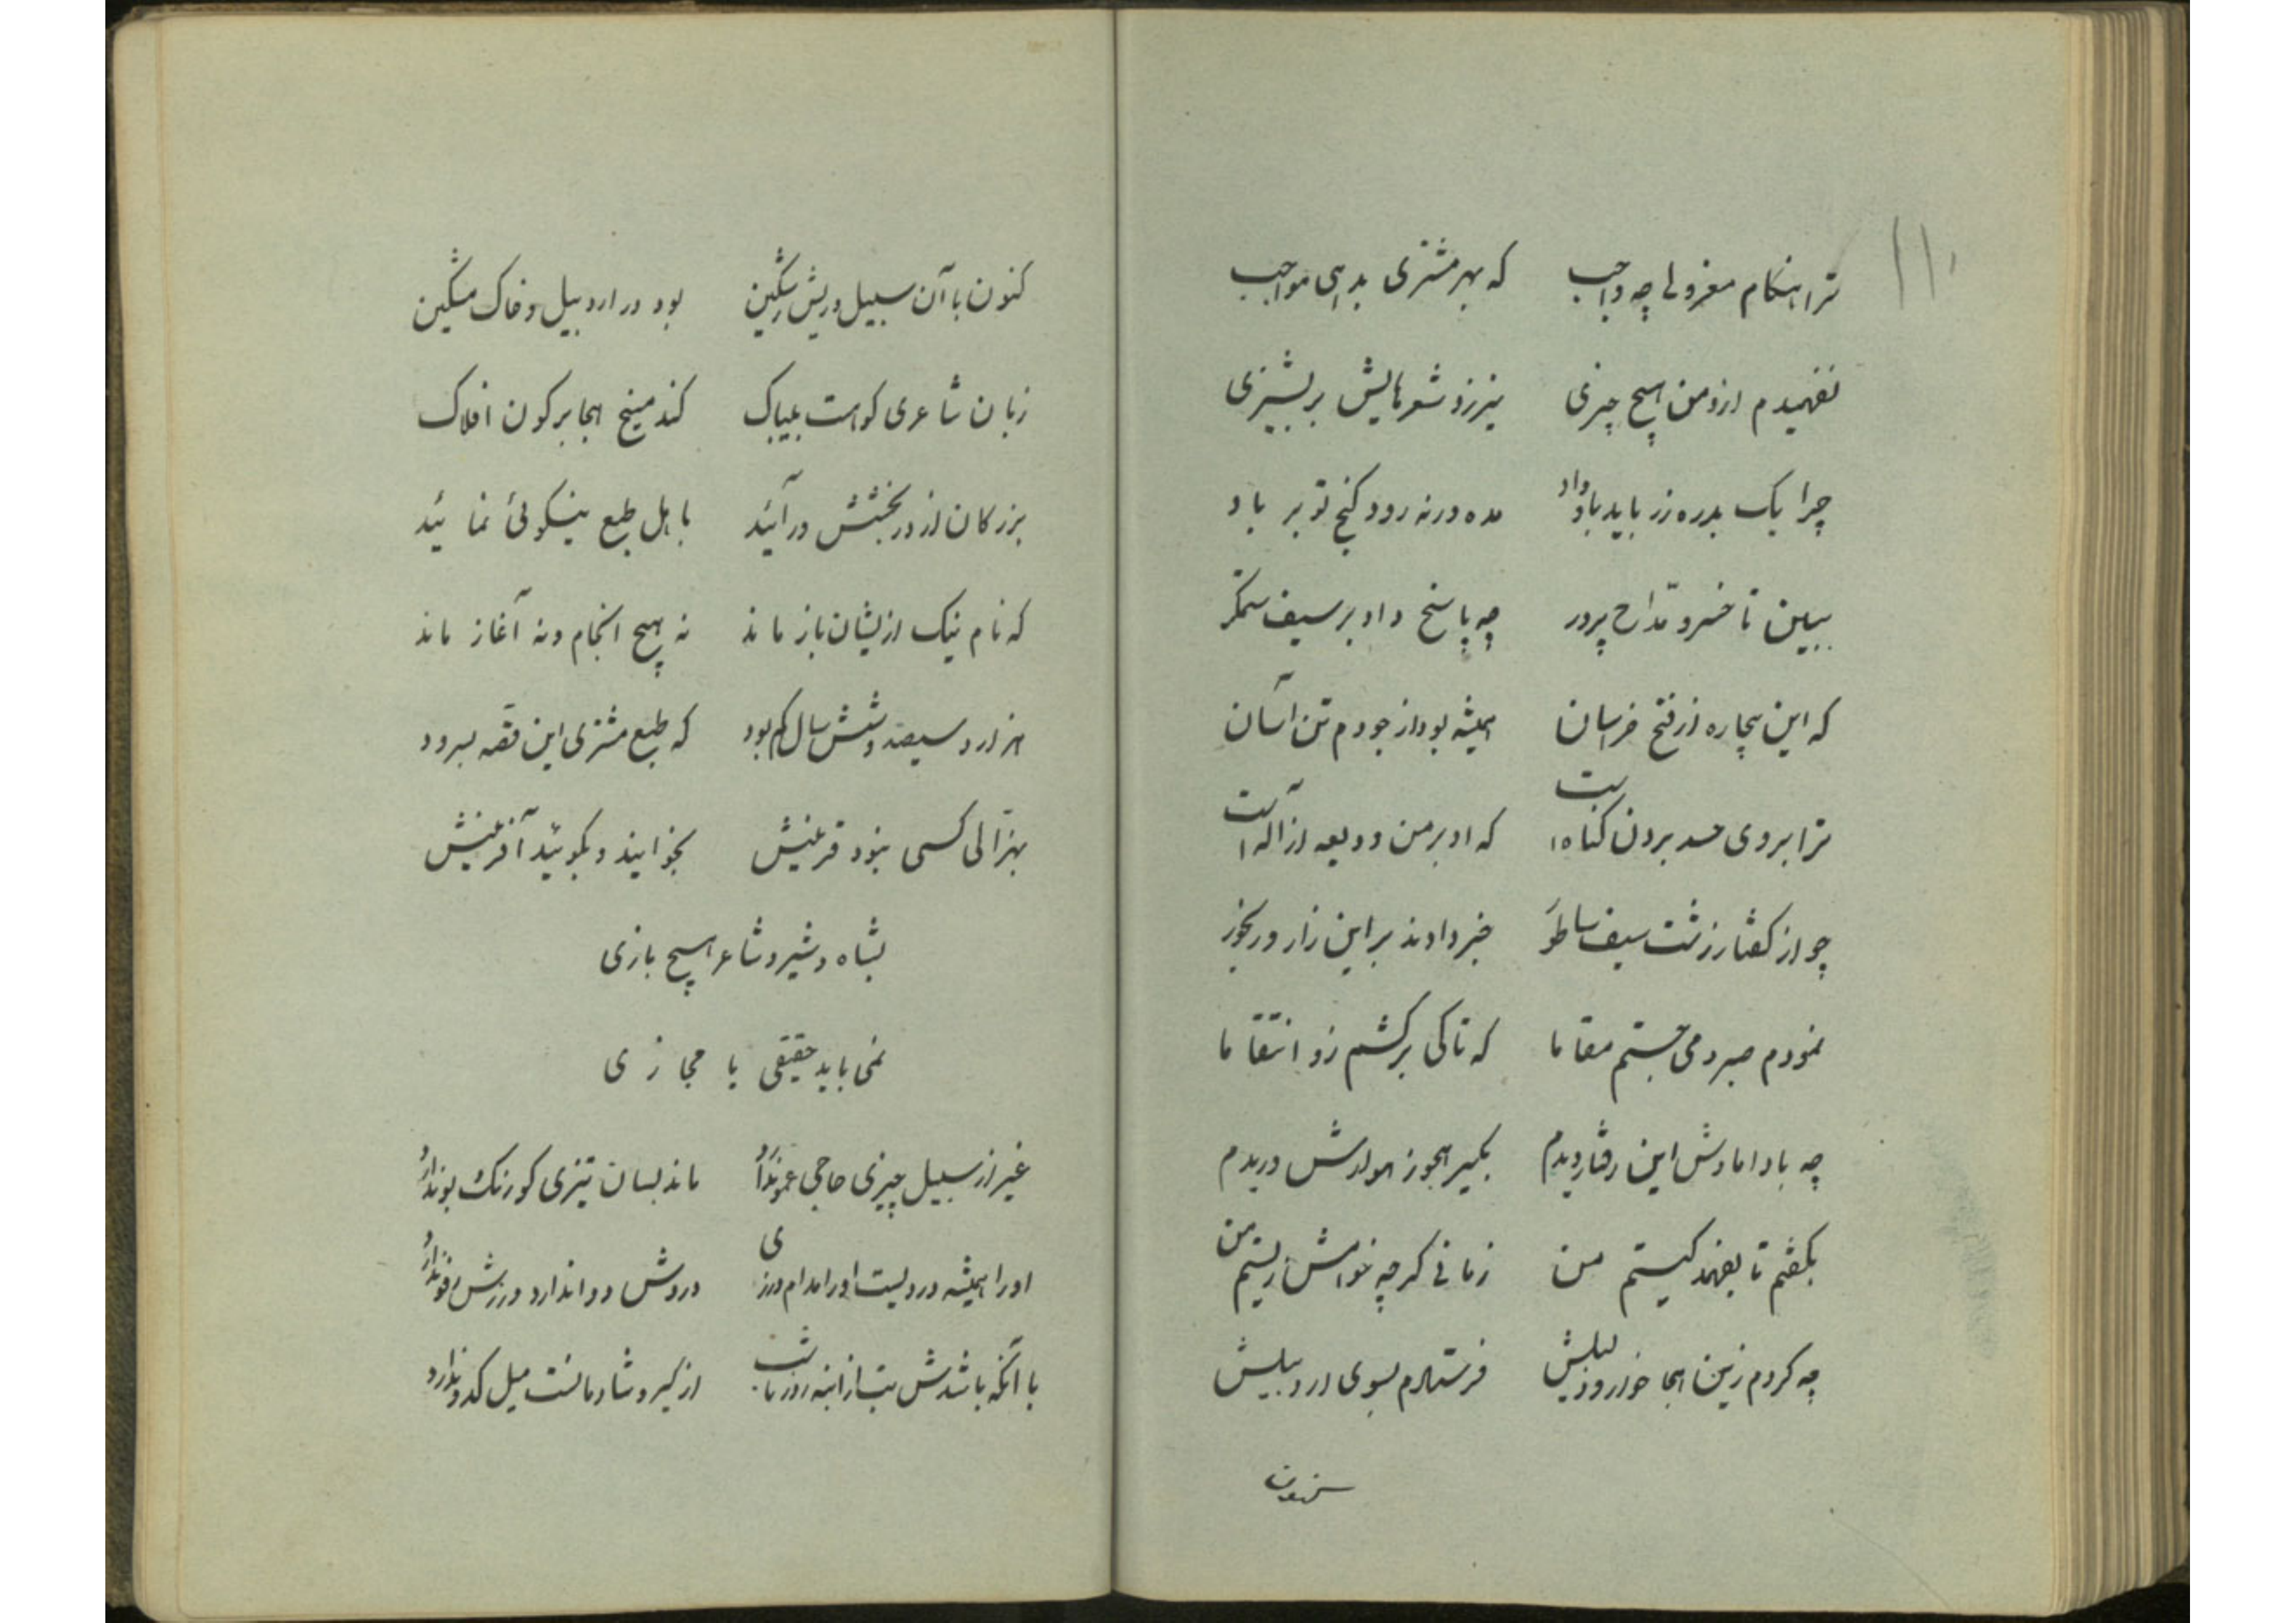 ۱۱۰
ترا هنگام معزولی چه واجب که بهر مشتری بدهی مواجب
نفهمیدم ازو من هیچ چیزی نیرزد شعرهایش بر پشیزی
چرا یک بدره زر باید باو داد مده ورنه رود گنج تو بر باد
ببین تا خسرو مدّاح پرور چه پاسخ داد بر سیف ستمگر
که این بیچاره از فتح خراسان همیشه بود از جودم تن آسان
ترا بر وی حسد بردن گناهست که او بر من ودیعه از آلهست
چو از گفتار زشت سیف ساطور خبر دادند بر این زار و رنجور
نمودم صبر و می جستم مقاما که تا کی برکشم زو انتقاما
چه با دامادش این رفتار دیدم بکیر هجو زهولدش دریدم
بگفتم تا بفهمد کیستم من زمانی گرچه خوامش زیستم من
چه کردم زین هجا خوار و ذلیلش فرستادم بسوی اردبیلش
کنون با آن سبیل و ریش رنگین بود در اردبیل و خاک مشکین
زبان شاعری کو هست بیباک کند میخ هجا بر کون افلاک
بزرگان از در بخشش درآئید باهل طبع نیکوئی نمائید
که نام نیک ازیشان باز ماند نه هیچ انجام و نه آغاز ماند
هزار و سیصد و شش سال کم بود که طبع مشتری این قصّه بسرود
بهزّالی کسی نبود قرینش بخوانید و بگوئید آفرینش
بشاه و شیر و شاعر هیچ بازی
نمی باید حقیقی یا مجازی
غیر از سبیل چیزی حاجی عمو ندارد ماند بسان تیزی کو رنگ و بو ندارد
او را همیشه دردیست او را مدام درزی دردش دوا ندارد درزش رفو ندارد
با آنکه باشدش تب از ابنه روز تا شب از کیر و شادمانست میل کدو ندارد